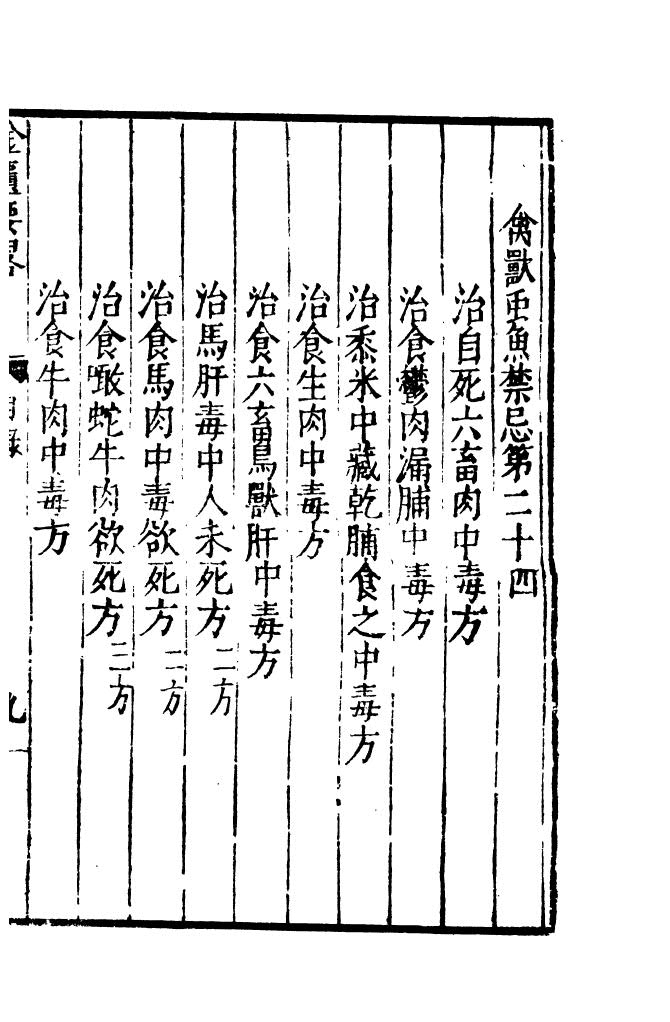 禽獸䖝魚禁忌第二十四
治自死六畜肉中毒方
治食鬱肉漏脯中毒方
治黍米中藏乾脯食之中毒方
治食生肉中毒方
治食六畜鳥獸肝中毒方
治馬肝毒中人未死方 二方
治食馬肉中毒欲死方 二方
治食噉蛇牛肉欲死方 三方
治食牛肉中毒方
金匱要略 目錄 九